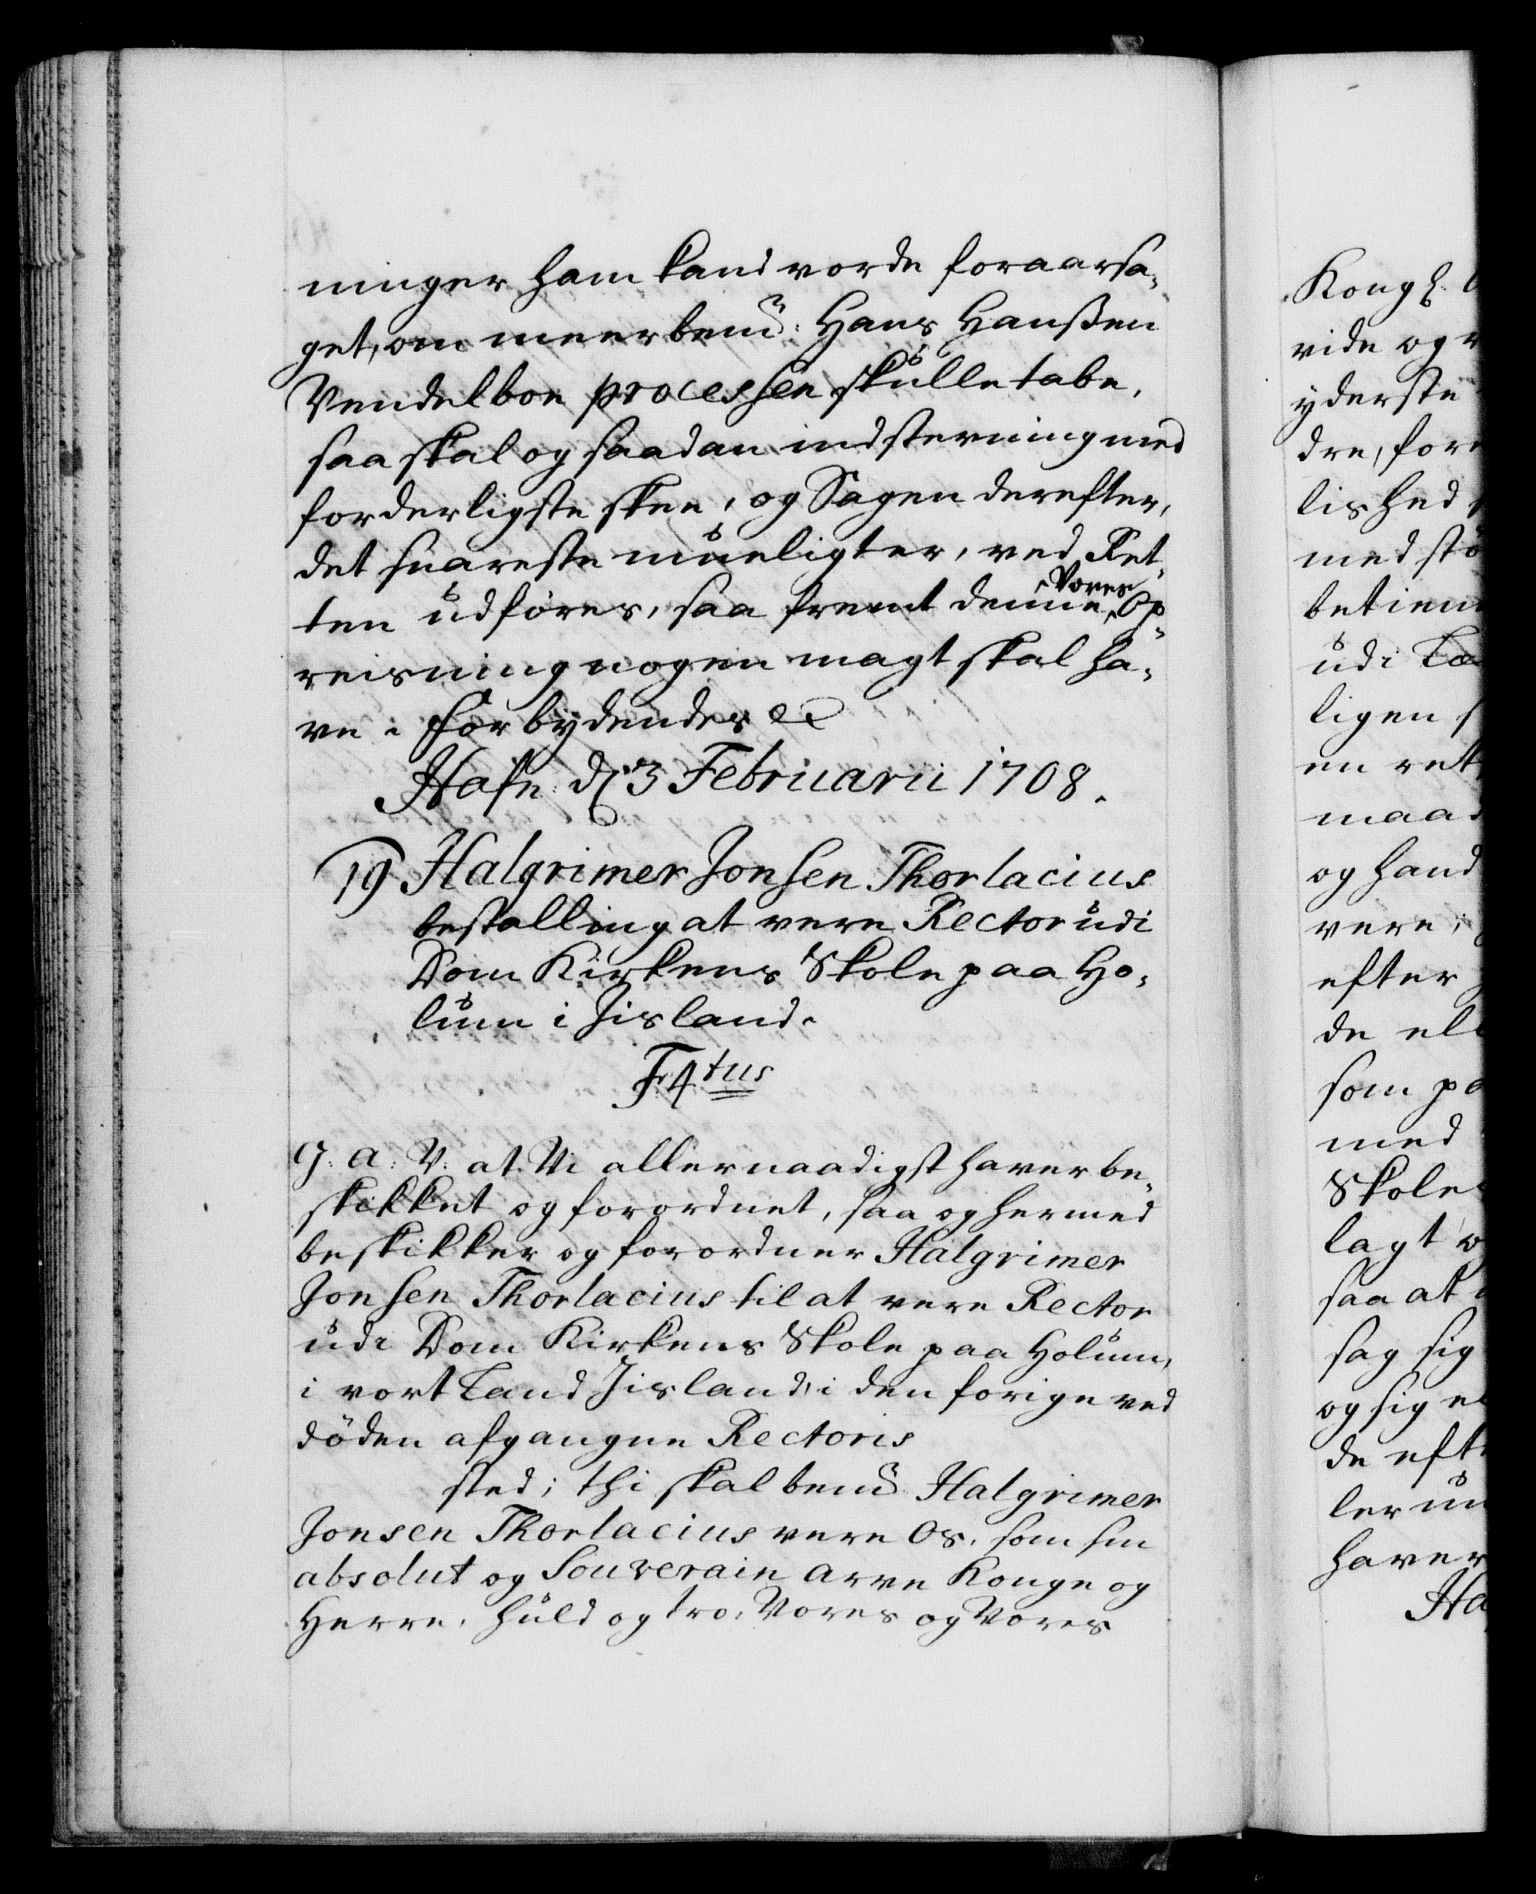 ninger ham kand vorde foraarsa,
get, om meerbem.te Hans Hanßen
Vendelboe processen skulle tabe,
saa skal og saadan indstevning med
forderligste skee, og Sagen derefter,
det snareste mueligt er, ved Ret,
ten udføres, saa fremt denne Vores Op,
reisning nogen magt skal ha,
ve. Forbydendes &c
Hafn: d. 3 Februarii 1708.
19 Halgrimer Jonsen Thorlacius
bestalling at vere Rector udi
Dom Kirkens Skole paa Ho,
lum i Jisland.
F 4tus
G. A. V. at Vi allernaadigst haver be,
skikket og forordnet, saa og hermed
beskikker og forordner Halgrimer
Jonsen Thorlacius til at vere Rector
udi Dom Kirkens Skole paa Holum,
i vort Land Jisland, i den forige ved
døden afgangne Rectoris
sted; thi skal bem.te Halgrimer
Jonsen Thorlacius vere Os, som sin
absolut og Souverain Arve Konge og
Herre, huld og tro, Vores og Vores
Kongl.
vide og
yderste
dre, for
lished
med
betien
udi
ligen
en ret
maad
og hand
vere,
efter
de ell
som pa
med
Skole
lagt
saa at
sag sig
og sig
de eft
ler un
haver
Ha